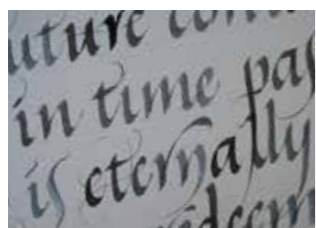 uture cont
in time pas
is eternally
redeem